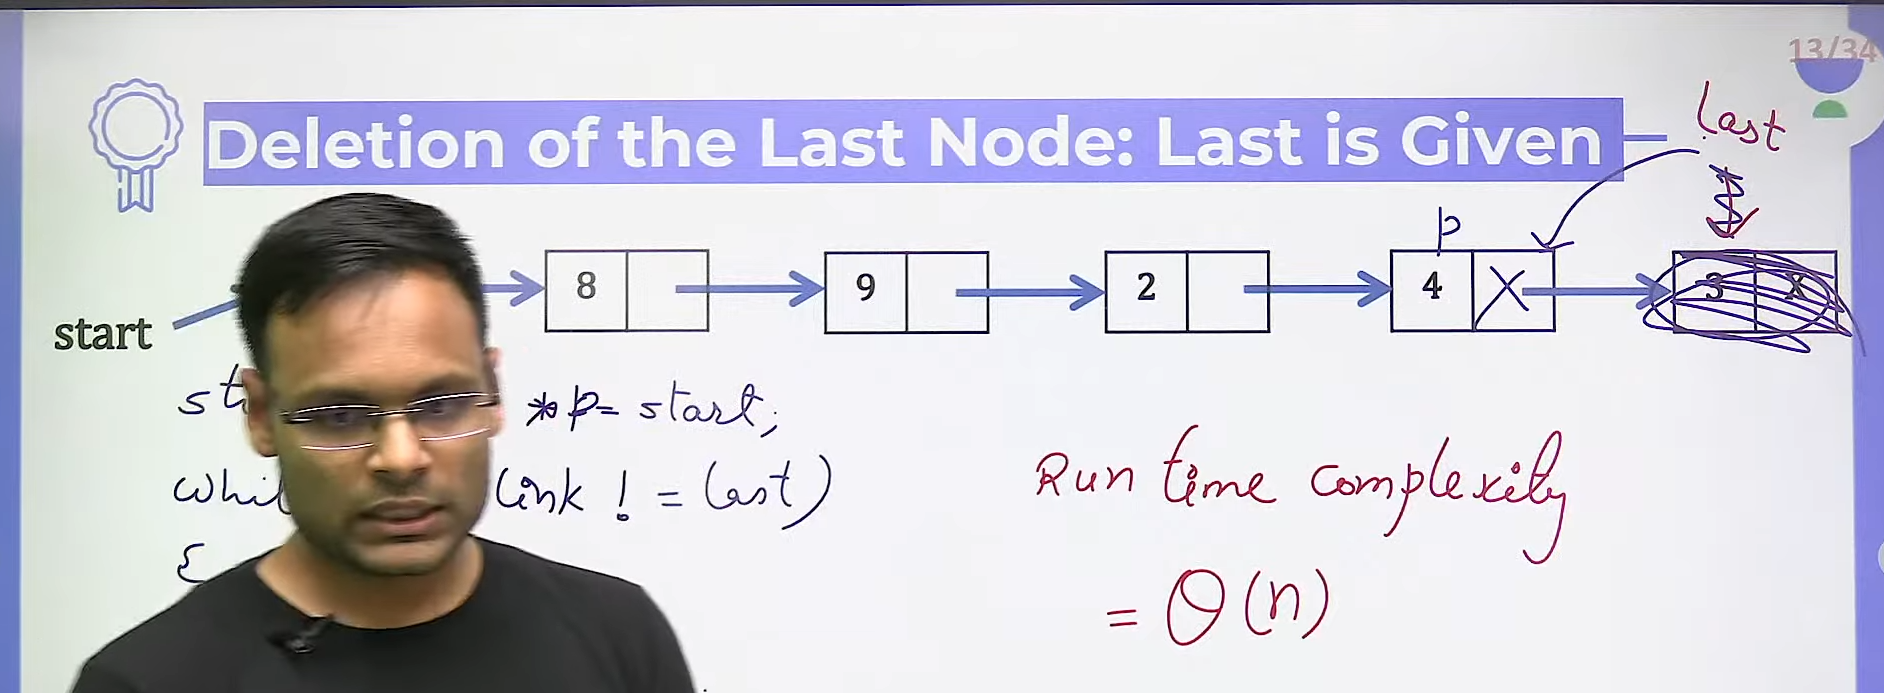 13/34
Deletion of the Last Node: Last is Given
last
p
8 9 2 4 X 3 X
start
*p= start;
link != last)
{
Run time complexity
= Θ(n)